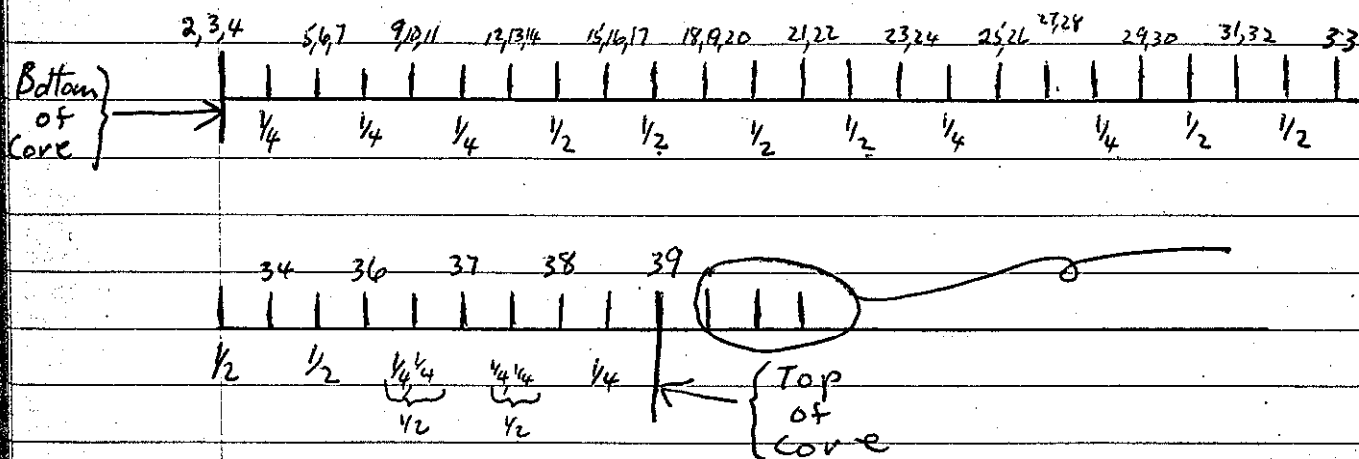 2,3,4 5,6,7 9,10,11 12,13,14 15,16,17 18,19,20 21,22 23,24 25,26 27,28 29,30 31,32 33
Bottom
of
Core
1/4 1/4 1/4 1/2 1/2 1/2 1/2 1/4 1/4 1/2 1/2
34 36 37 38 39
1/2 1/2 1/4 1/4 1/4 1/4 1/4
1/2 1/2
Top
of
core